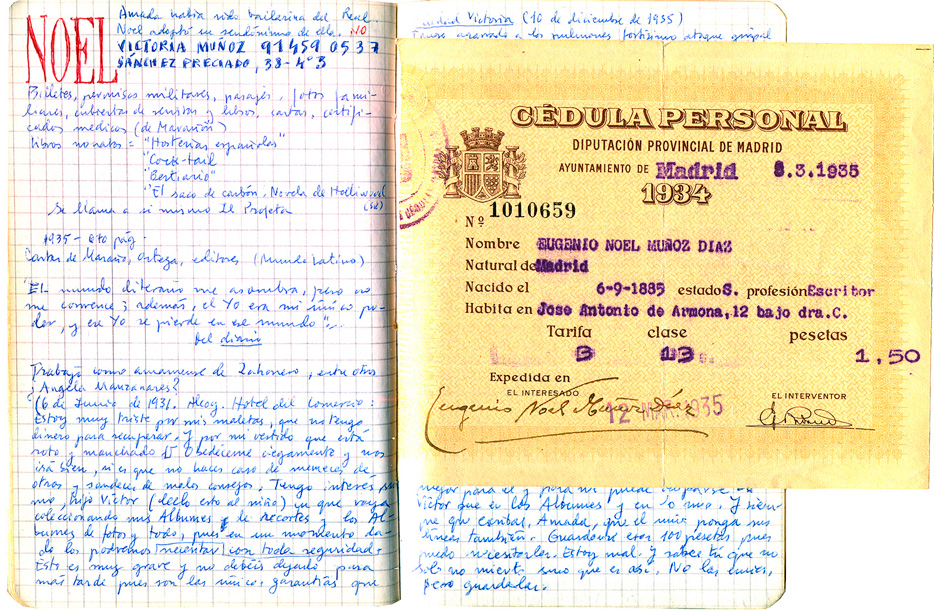 NOEL
Amada había sido bailarina del Real.
Noel adoptó su seudónimo de ella. NO
VICTORIA MUÑOZ 91459 0537
SÁNCHEZ PRECIADO, 38-4º3
Billetes, permisos militares, pasajes, fotos fami-
liares, cubiertas de revistas, libros, cartas, certifi-
cados médicos (de Marañón)
Libros nonatos = "Hosterías españolas"
"Cock-tail
"Bestiario"
"El saco de carbón, Novela de Hollywood
Se llama a sí mismo El Profeta
1935 - pág.
Cartas de Marañón, Ortega, editores (Mundo Latino)
"El mundo literario me asombra, pero no
me convence; además, el Yo era mi único po-
der, y ese Yo se pierde en ese mundo"...
Del diario
Trabajó como amanuense de Zahonero, entre otros
¿Angela Manzanares?
(6 de Junio de 1931. Alcoy. Hotel del Comercio:
Estoy muy triste por mis maletas, que no tengo
dinero para recuperar. Y por mi vestido que está
roto y manchado. Obedéceme ciegamente y nos
irá bien, si es que no haces caso de memeces de
otros y sandeces de malos consejos. Tengo interés su-
mo, hijo Víctor (léele esto al niño) en que vaya
coleccionando mis Albumes de recortes y los Al-
bumes de fotos y todo, pues en un momento da-
do los podremos necesitar con toda seguridad.
Esto es muy grave y no debéis dejarlo para
más tarde pues son las únicas garantías que
Ciudad Victoria (10 de diciembre de 1935)
Tengo agarrado a los pulmones fortísimo ataque gripal
CÉDULA PERSONAL
DIPUTACIÓN PROVINCIAL DE MADRID
AYUNTAMIENTO DE Madrid 8.3.1935
1934
Nº 1010659
Nombre EUGENIO NOEL MUÑOZ DIAZ
Natural de Madrid
Nacido el 6-9-1885 estado S. profesión Escritor
Habita en Jose Antonio de Armona, 12 bajo dra. C.
Tarifa clase pesetas
3 13ª. 1,50
Expedida en
EL INTERESADO
EL INTERVENTOR
Eugenio Noel Muñoz Díaz
12 MAR. 1935
mejor para él y para mí puede ocuparse
Víctor que en los Albumes y en lo mío. Y siem-
pre que escribas, Amada, que el niño ponga sus
líneas también. Guardaros esas 100 pesetas, pues
puedo necesitarlas. Estoy mal. Y sabes tú que no
sólo no miento sino que es así. No las envíes,
pero guárdalas.